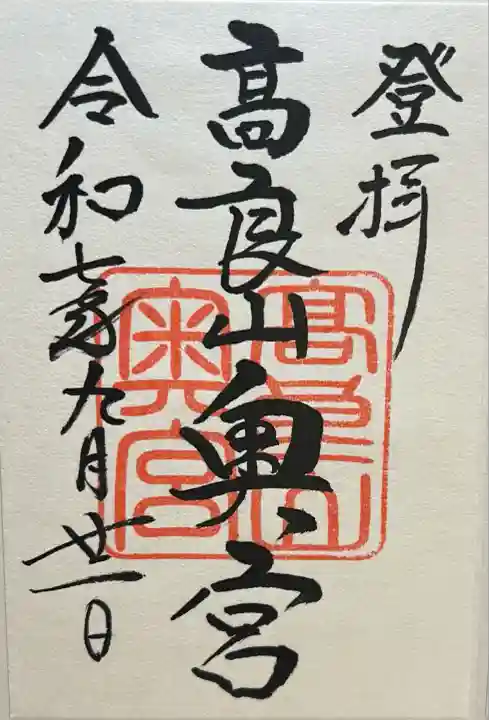 登拝
高良山奥宮
令和七歳九月廿一日
高良山奥宮